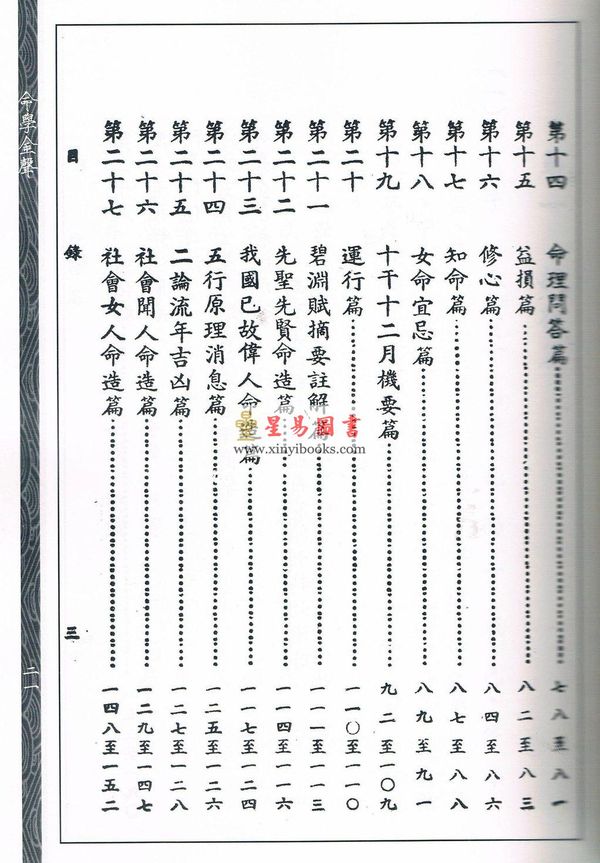 第十四 命理問答篇 七八至八一
第十五 益損篇 八二至八三
第十六 修心篇 八四至八六
第十七 知命篇 八七至八八
第十八 女命宜忌篇 八九至九一
第十九 十干十二月機要篇 九二至一〇九
第二十 運行篇 一一〇至一一〇
第二十一 碧淵賦摘要註解篇 一一一至一一三
第二十二 先聖先賢命造篇 一一四至一一六
第二十三 我國已故偉人命造篇 一一七至一二四
第二十四 五行原理消息篇 一二五至一二六
第二十五 二論流年吉凶篇 一二七至一二八
第二十六 社會聞人命造篇 一二九至一四七
第二十七 社會女人命造篇 一四八至一五二
目錄 三
命學金聲 二一
星易圖書
www.xinyibooks.com